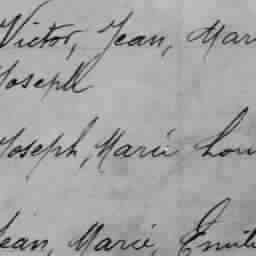 Victor, Jean, Mari
Joseph
Joseph, Marie Lou
Jean, Marie, Emile